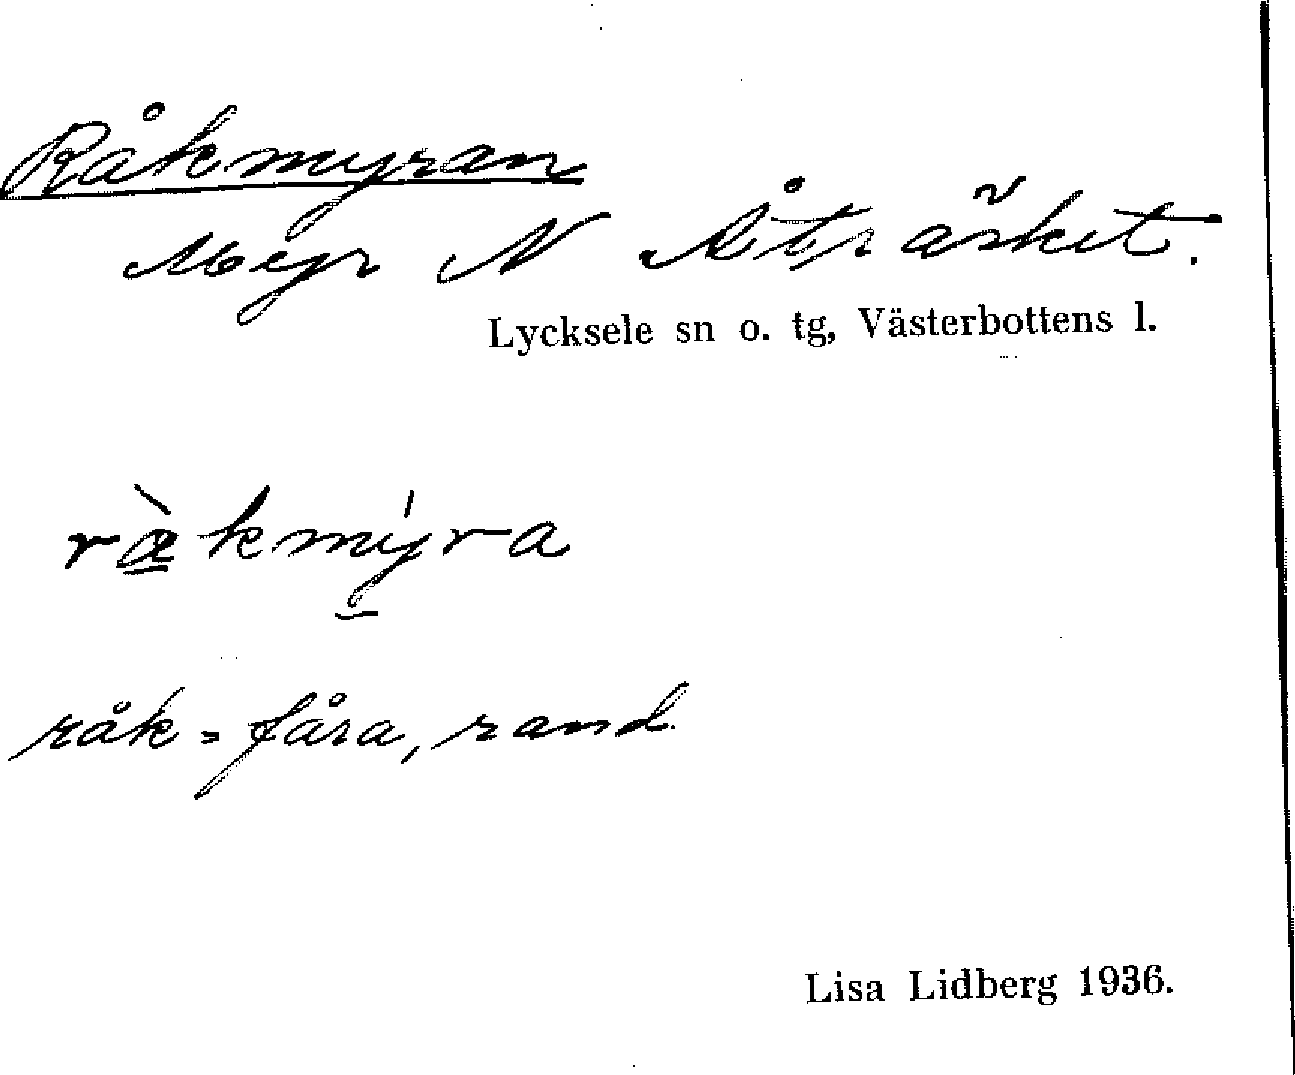 Råkmyran
Myr N Åträsket.
Lycksele sn o. tg, Västerbottens l.
ràkmýra
råk = fåra, rand
Lisa Lidberg 1936.